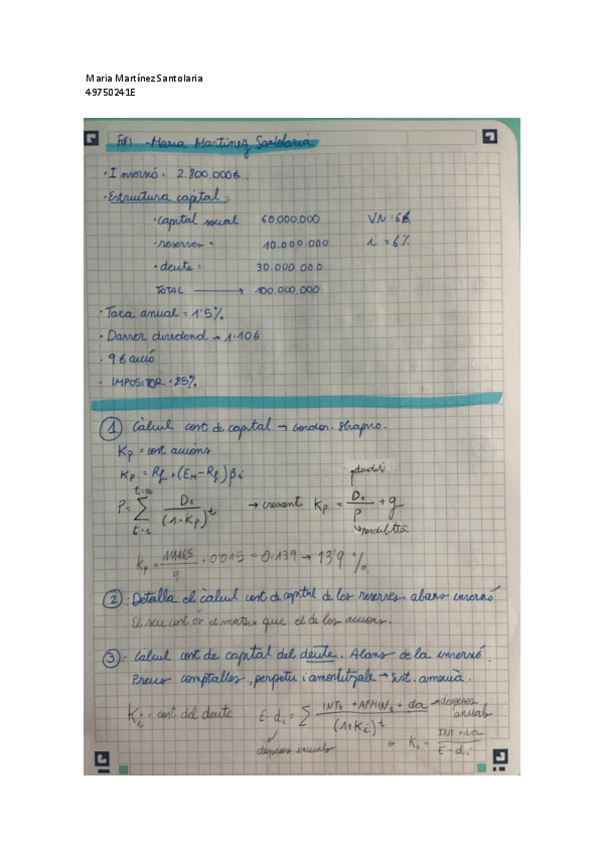 Maria Martínez Santolaria
49750241E
FEI - Maria Martínez Santolaria
· Inversió = 2.800.000€
· Estructura capital:
· capital social 60.000.000 VN: 6€
· reserves = 10.000.000 i = 6%
· deute = 30.000.000
TOTAL → 100.000.000
· Taxa anual = 1'5%
· Darrer dividend → 1.10€
· 9€ acció
· IMPOSITOR = 25%
1 Càlcul cost de capital → Gordon-Shapiro.
Kp = cost accions
Kp = Rf + (EM - Rf) βi
P = ∑ t=1 t=∞ Dt / (1+Kp)^t → creixent Kp = D1 / P + g
Kp = 1'1165 / 9 + 0'015 = 0.139 → 13'9 %
2: Detalla el càlcul cost de capital de les reserves abans inversió
El seu cost és el mateix que el de les accions.
3: Càlcul cost de capital del deute. Abans de la inversió.
Preus comptables, perpetu i amortitzable →
Ki = cost del deute E - di = ∑ INTt + da / (1+Ki)^t → despeses anuals
despeses inicials Ki = INT + da / E - di